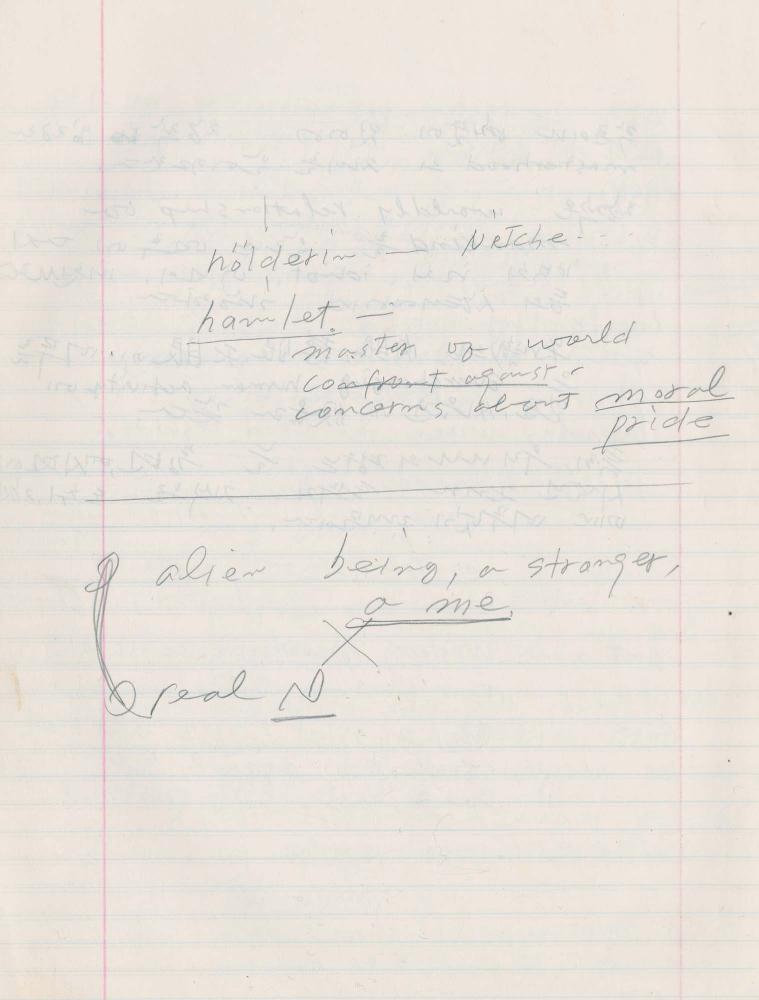 hölderin — Netche...
hamlet. —
master of world
confront against -
concerns about moral
pride
alien being, a stranger,
a me.
real N